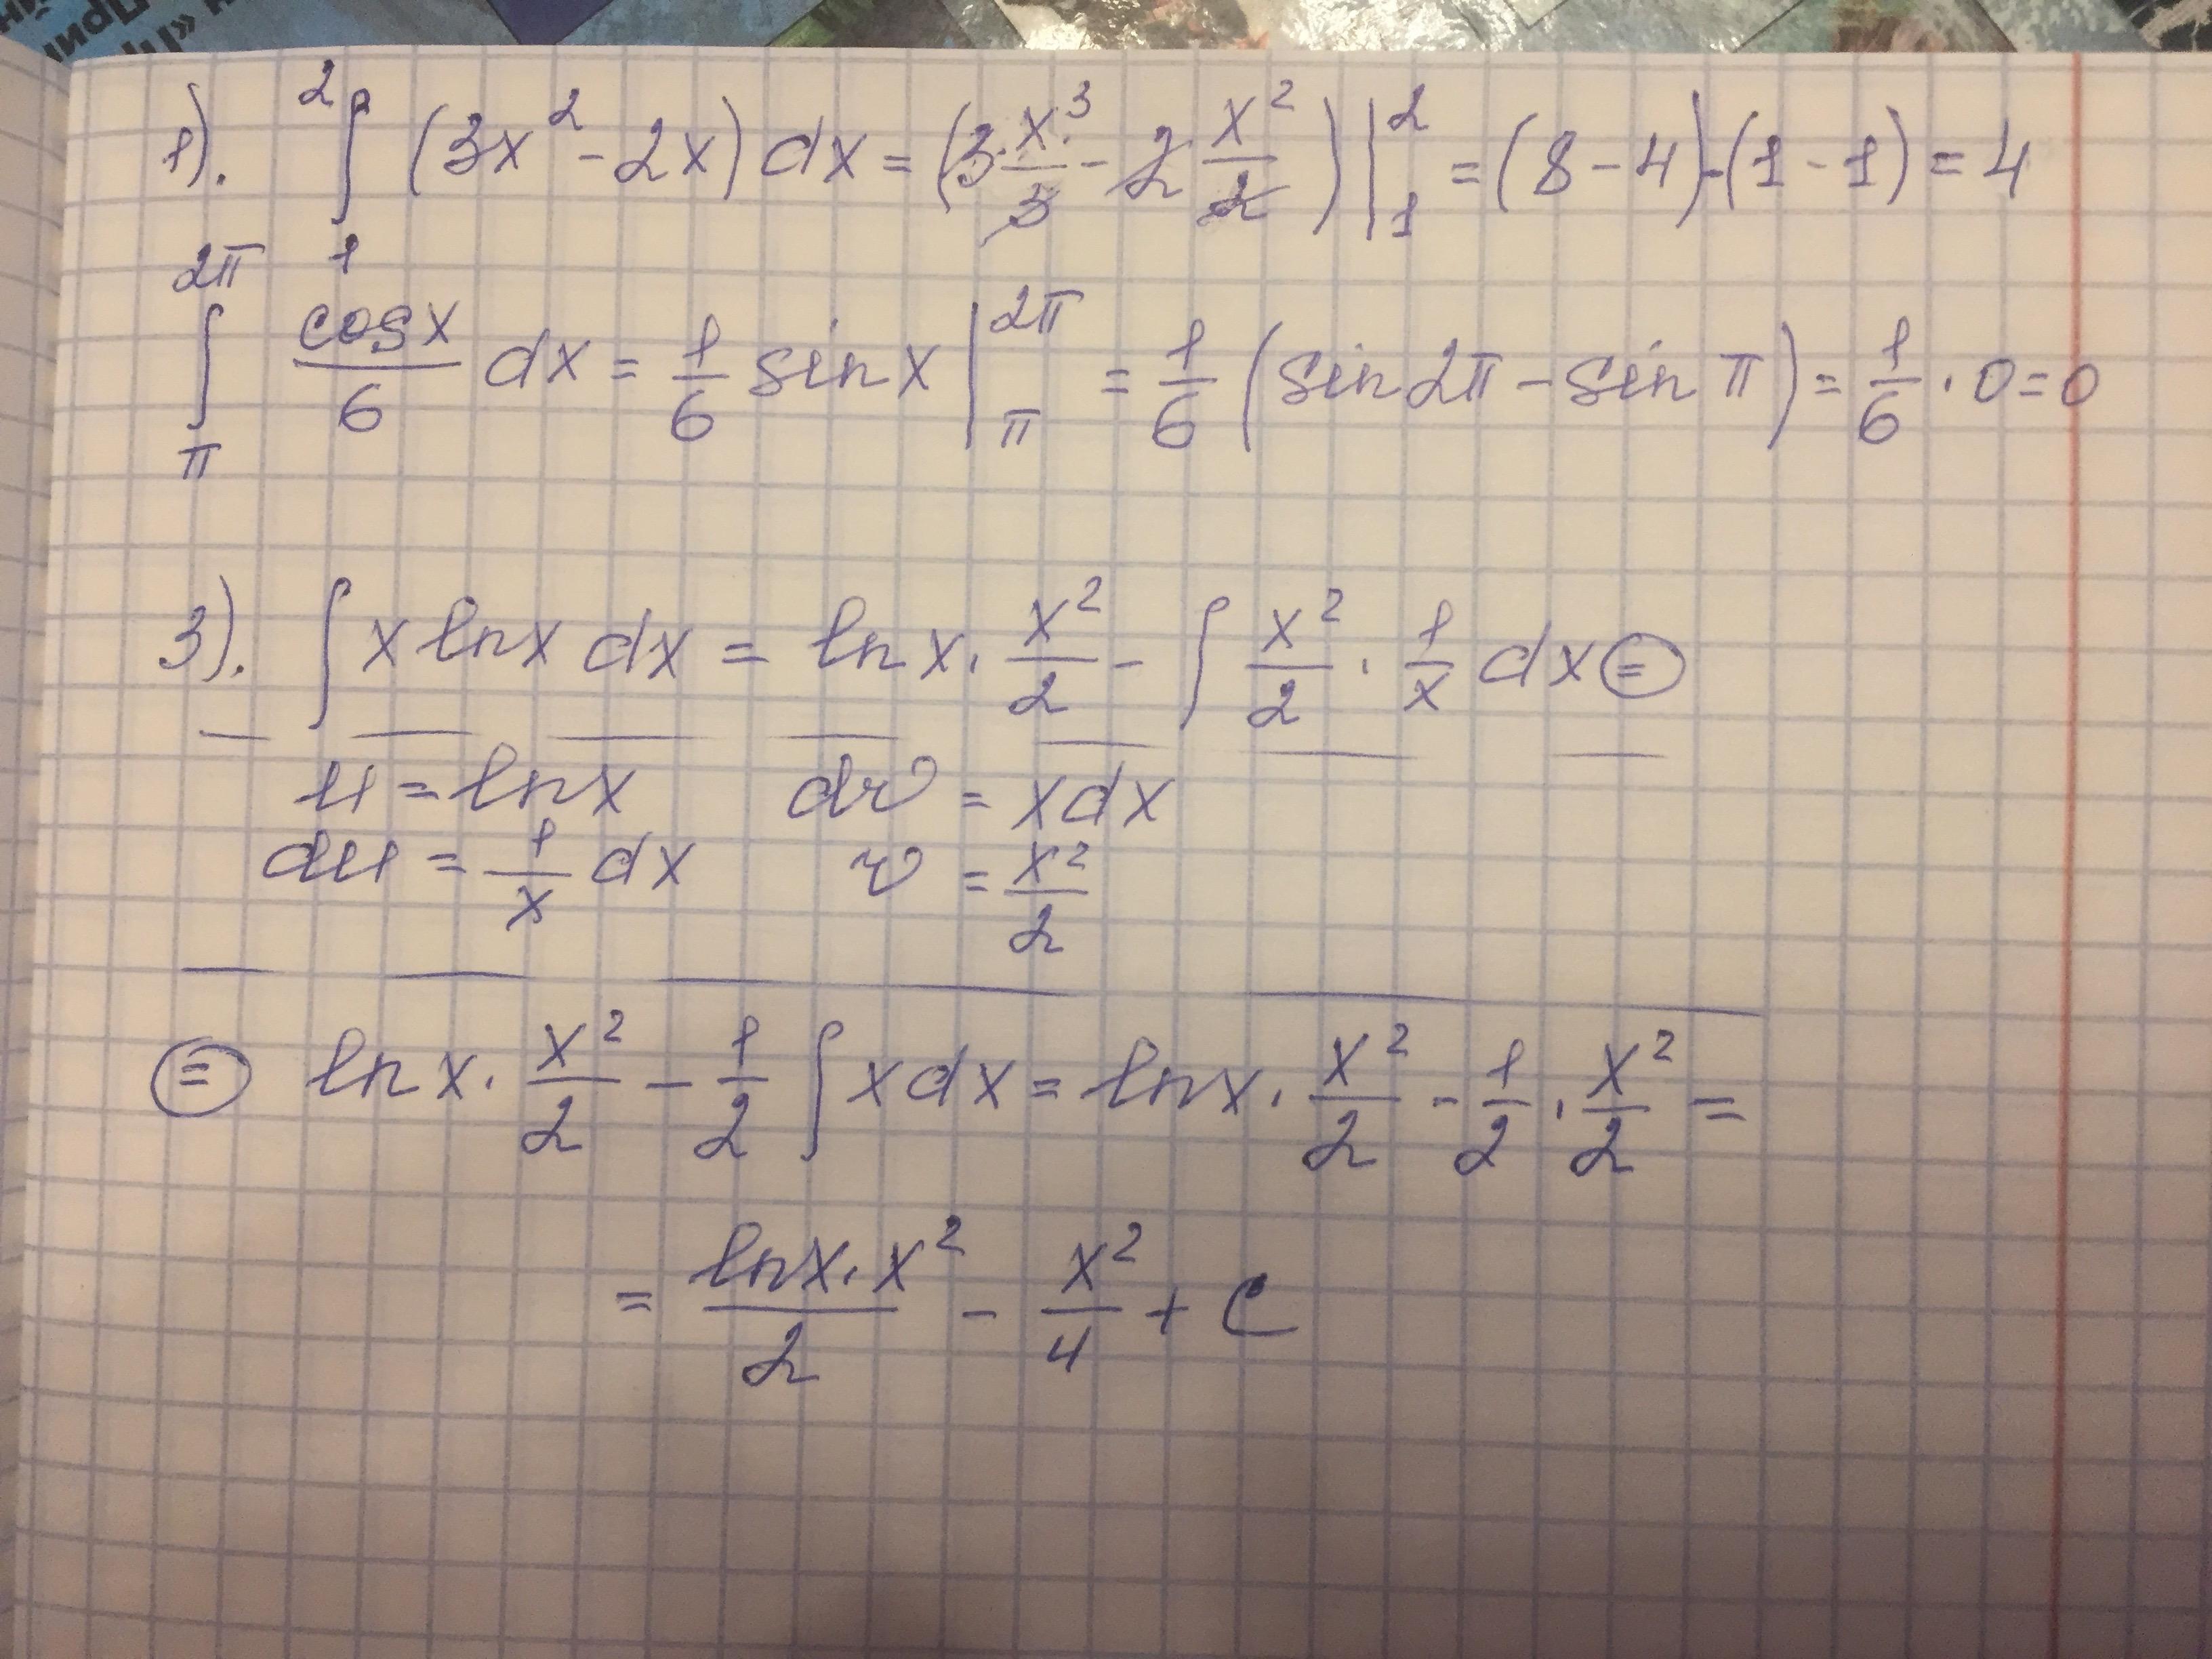 1). ∫₁² (3x² - 2x) dx = (3·x³/3 - 2 x²/2) |₁² = (8 - 4) - (1 - 1) = 4
∫_π^{2π} cos x/6 dx = 1/6 sin x |_π^{2π} = 1/6 (sin 2π - sin π) = 1/6 · 0 = 0
3). ∫ x ln x dx = ln x · x²/2 - ∫ x²/2 · 1/x dx ⊜
u = ln x dv = x dx
du = 1/x dx v = x²/2
⊜ ln x · x²/2 - 1/2 ∫ x dx = ln x · x²/2 - 1/2 · x²/2 =
= ln x · x²/2 - x²/4 + C